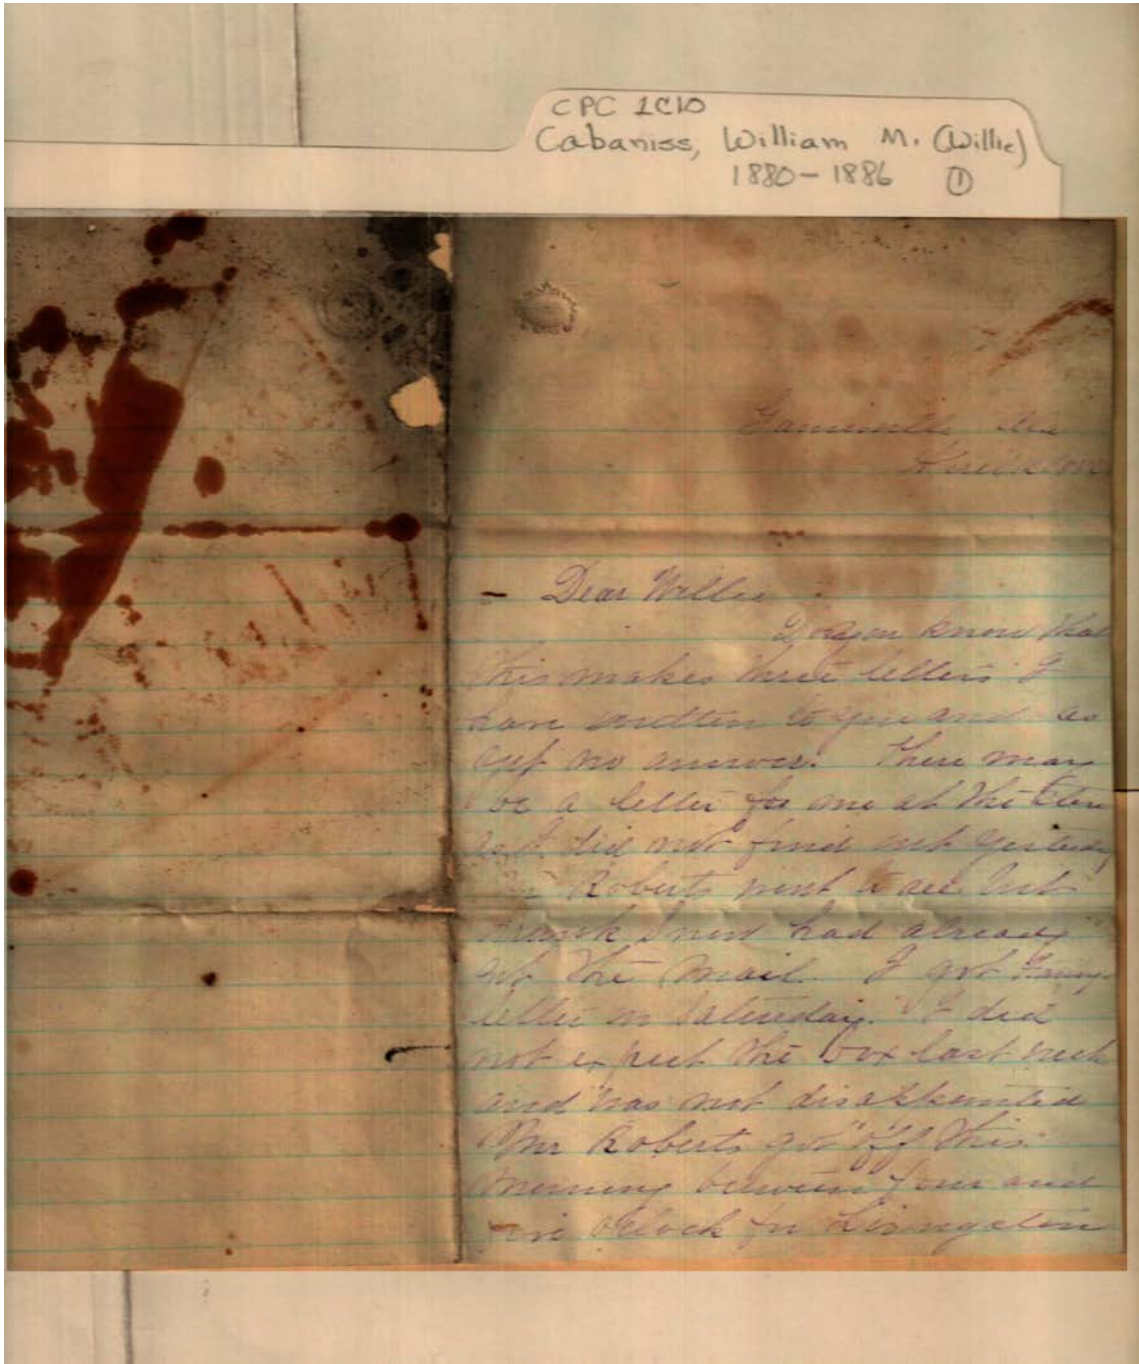 CPC 1C10
Cabaniss, William M. (Willie)
1880-1886 ①
Dear Willie
Do you know that
this makes three letters I
have written to you and as
no answer. There may
be a letter for me at the
did not find out yesterday
Roberts went to see but
had already
got the mail. I got
letter on Saturday. I did
not expect the box last week
and was not disappointed
Mr Roberts got off this
morning between four and
five oclock for Livingston